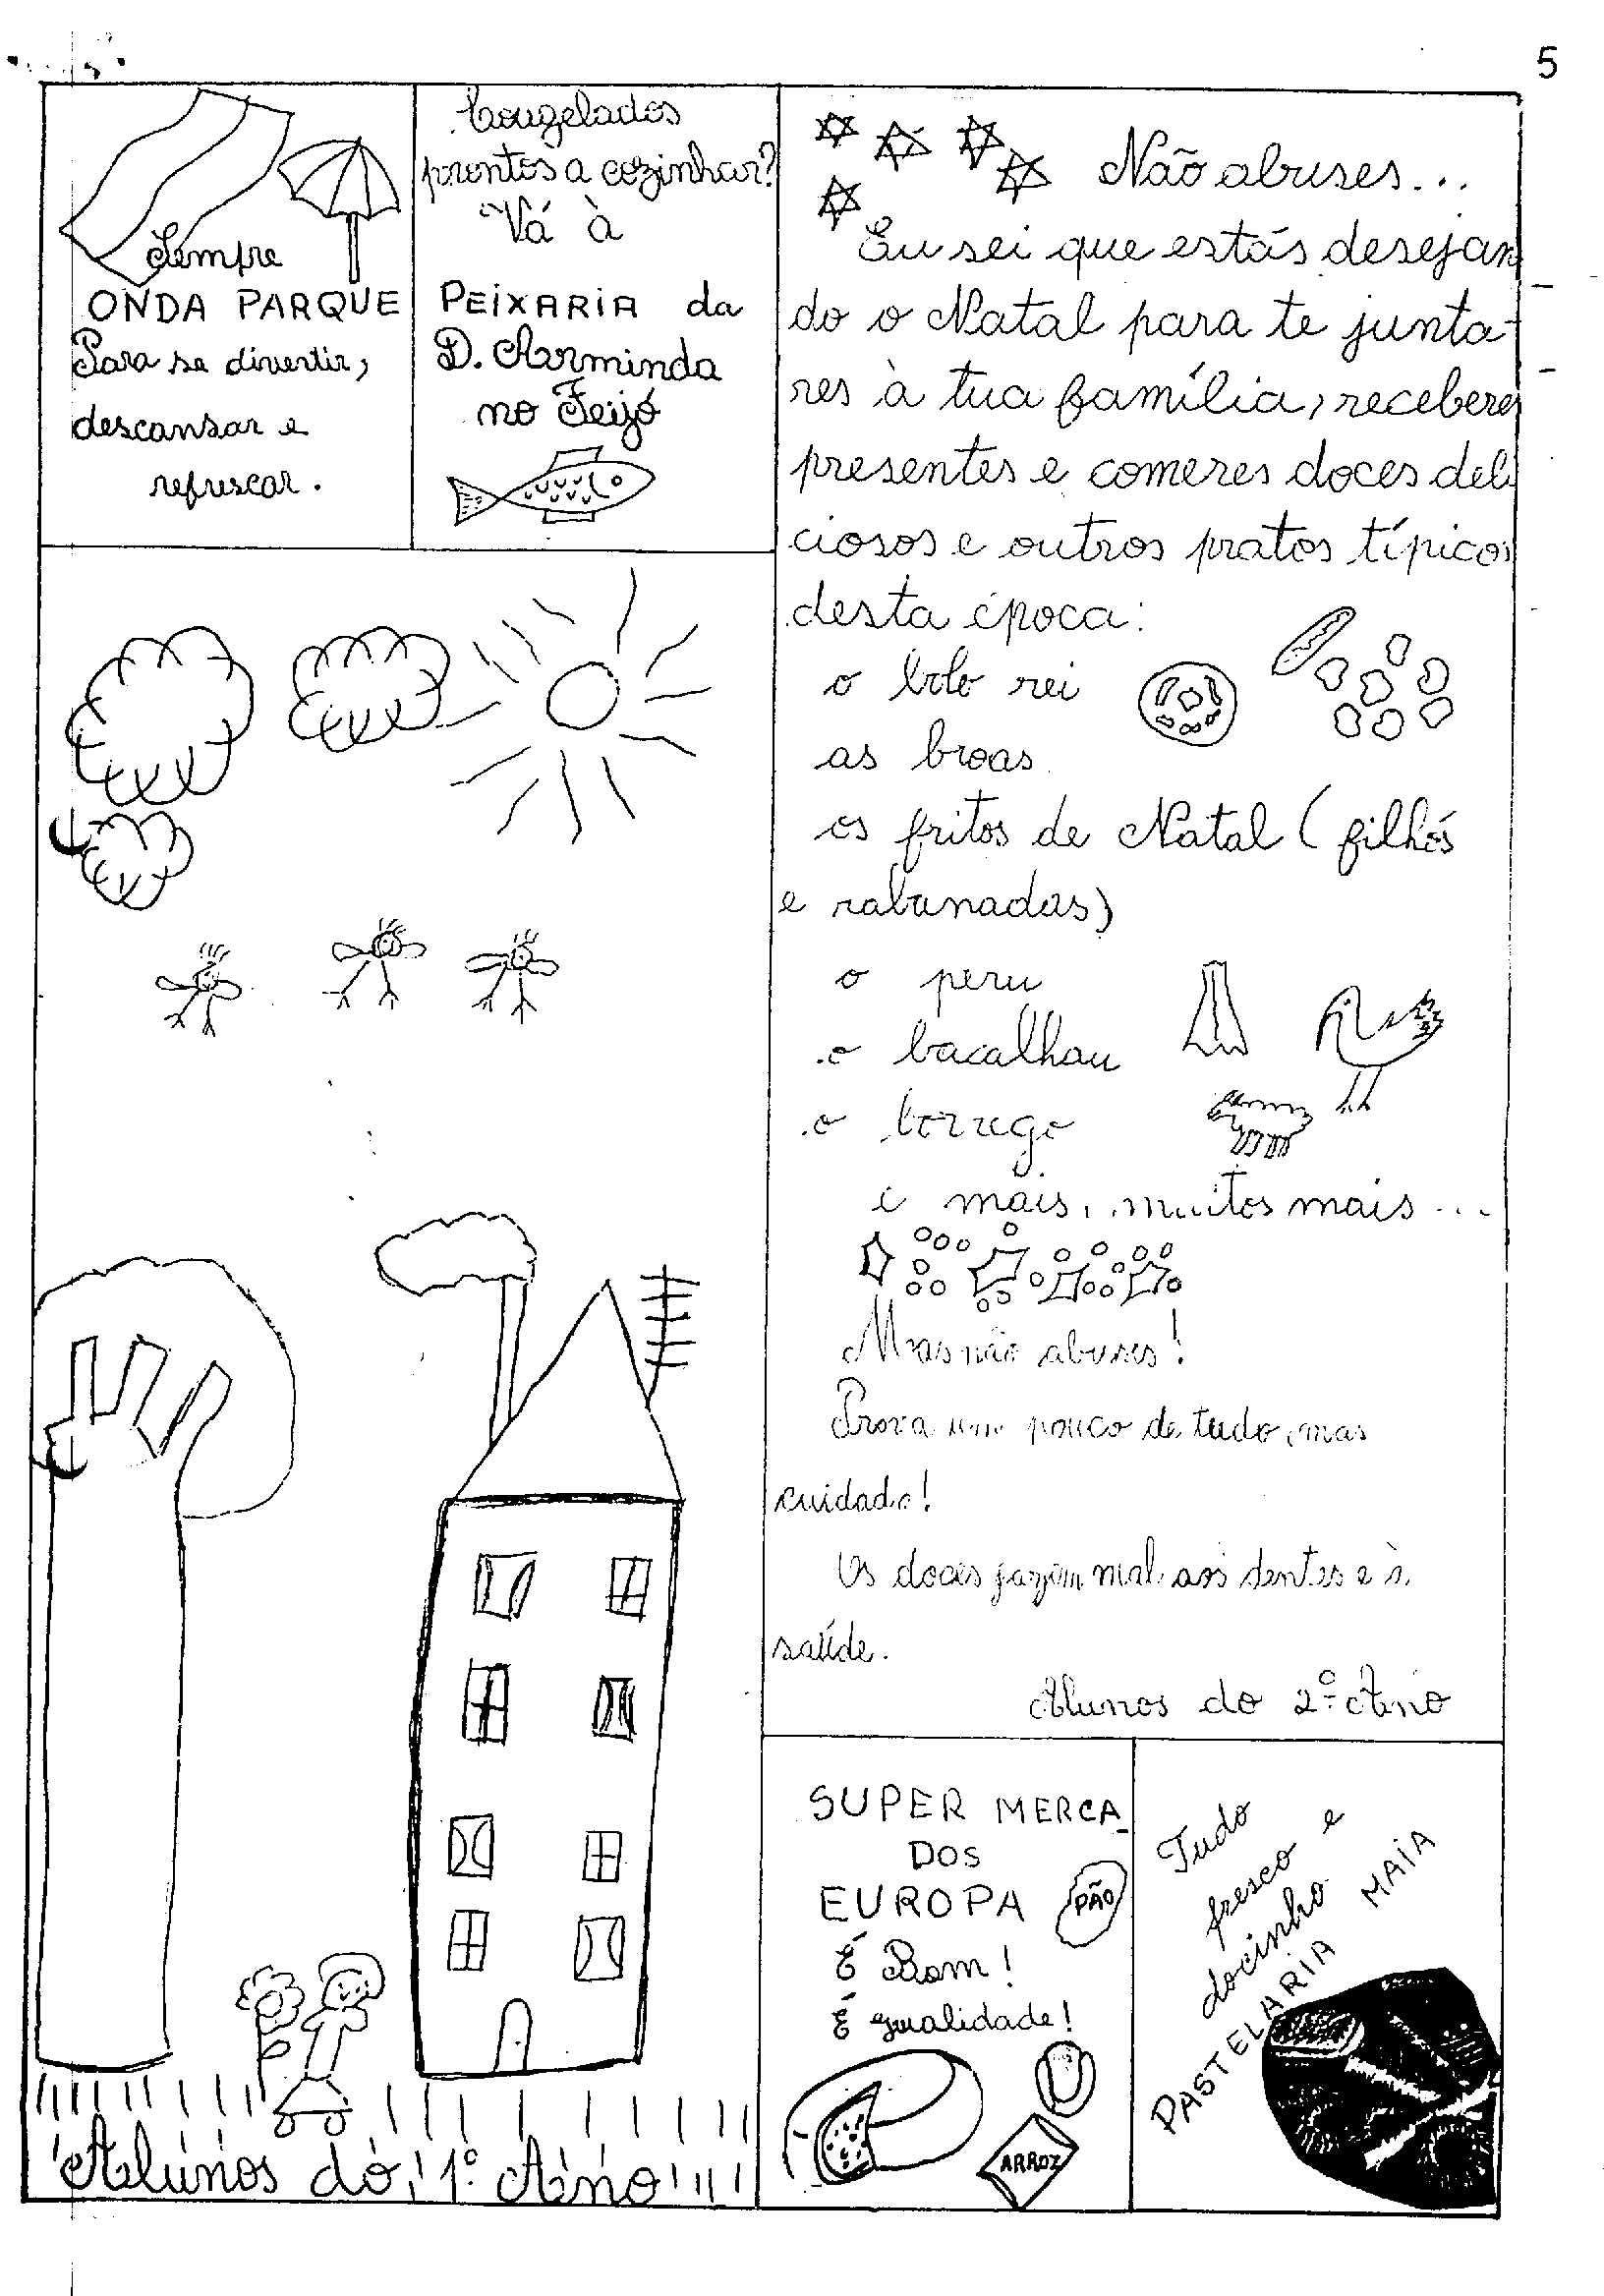 5
Sempre
ONDA PARQUE
Para se divertir,
descansar e
refrescar.
Congelados
prontos a cozinhar?
Vá à
PEIXARIA da
D. Arminda
no Feijó
Não abuses...
Eu sei que estás desejan
do o Natal para te junta-
res à tua família, receberes
presentes e comeres doces deli
ciosos e outros pratos típicos
desta época:
o bolo rei
as broas
os fritos de Natal (filhós
e rabanadas)
o peru
o bacalhau
o borrego
e mais, muitos mais...
Mas não abuses!
Prova um pouco de tudo, mas
cuidado!
Os doces fazem mal aos dentes e à
saúde.
Alunos do 2º Ano
Alunos do 1º Ano
SUPER MERCA_
DOS
EUROPA
PÃO
É Bom!
É qualidade!
ARROZ
Tudo
fresco e
docinho
PASTELARIA MAIA